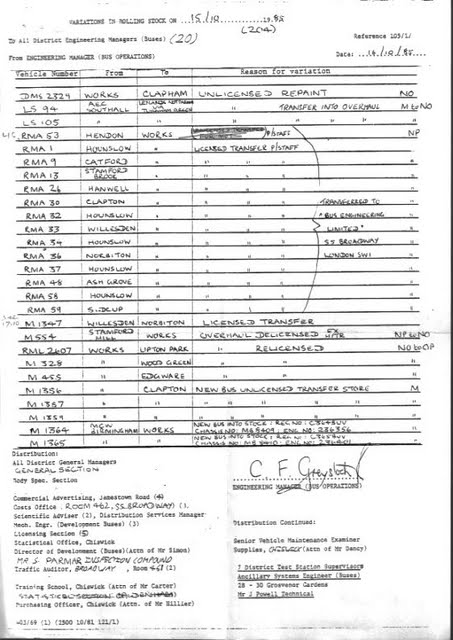 VARIATIONS IN ROLLING STOCK ON 15/10 1985
(204)
To All District Engineering Managers (Buses) (20) Reference 105/1/
From ENGINEERING MANAGER (BUS OPERATIONS) Date: 14/10/85
Vehicle Number From To Reason for variation
DMS 2324 WORKS CLAPHAM UNLICENSED REPAINT NO
LS 94 AEC SOUTHALL VIA " TRANSFER INTO OVERHAUL M to NO
LS 105 " " " " "
RMA 53 HENDON WORKS P/STAFF NP
RMA 1 HOUNSLOW " LICENSED TRANSFER P/STAFF
RMA 9 CATFORD " " " "
RMA 13 STAMFORD BROOK " " " "
RMA 26 HANWELL " " " "
RMA 30 CLAPTON " " " " TRANSFERRED TO
RMA 32 HOUNSLOW " " " " "BUS ENGINEERING
RMA 33 WILLESDEN " " " " LIMITED"
RMA 34 HOUNSLOW " " " " 55 BROADWAY
RMA 36 NORBITON " " " " LONDON SW1
RMA 37 HOUNSLOW " " " "
RMA 48 ASH GROVE " " " "
RMA 58 HOUNSLOW " " " "
RMA 59 SIDCUP " " " "
M 1347 WILLESDEN NORBITON LICENSED TRANSFER
M 554 STAMFORD HILL WORKS OVERHAUL DELICENSED NP to NO
RML 2607 WORKS UPTON PARK " RELICENSED NO to OP
M 328 " WOOD GREEN " "
M 455 " EDGWARE " "
M 1356 " CLAPTON NEW BUS UNLICENSED TRANSFER STORE M
M 1357 " " " " " " "
M 1359 " " " " " " "
M 1364 MCW BIRMINGHAM WORKS NEW BUS INTO STOCK: REG NO: C364BUV
CHASSIS NO: MB 8409: ENG NO: 236356
M 1365 " " NEW BUS INTO STOCK: REG NO: C365BUV
CHASSIS NO: MB 8410: ENG NO: 236401
Distribution:
All District General Managers
GENERAL SECTION
Body Spec. Section
C F Greystock
ENGINEERING MANAGER (BUS OPERATIONS)
Commercial Advertising, Jamestown Road (4)
Costs Office ROOM 462, 55 BROADWAY) (1)
Scientific Adviser (2), Distribution Services Manager
Mech. Engr. (Development Buses) (3)
Licensing Section (5)
Statistical Office, Chiswick
Director of Development (Buses)(Attn of Mr Simon)
MR S PARMAR INSPECTION COMPOUND
Traffic Auditor, BROADWAY
Training School, Chiswick (Attn of Mr Carter)
Purchasing Officer, Chiswick (Attn of Mr Hillier)
Distribution Continued:
Senior Vehicle Maintenance Examiner
Supplies, CHISWICK (Attn of Mr Dancy)
7 District Test Station Supervisors
Ancillary Systems Engineer (Buses)
28 - 30 Grosvenor Gardens
Mr J Powell Technical
03/69 (1) (2500 10/81 121/1)